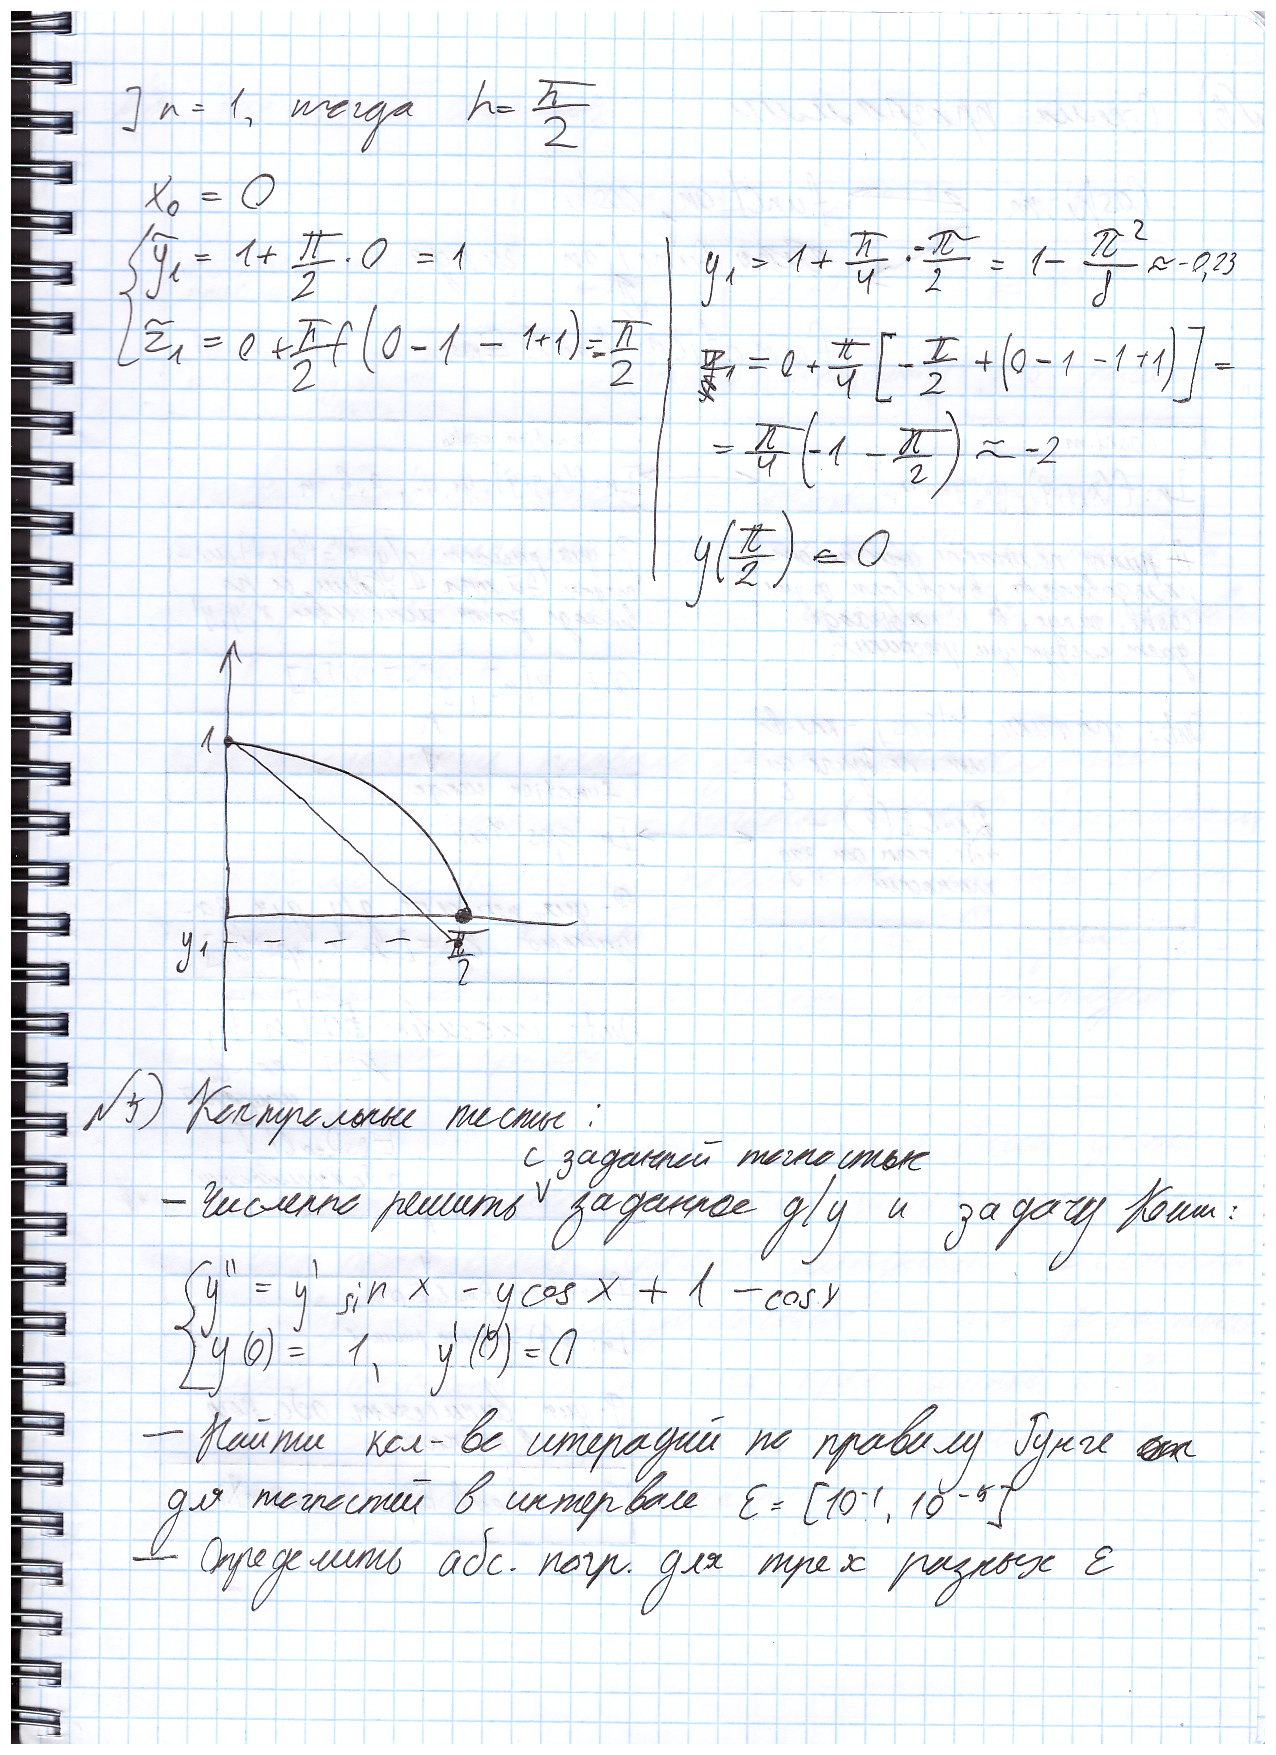 ] n = 1, тогда h = π/2
x₀ = 0
{ ỹ₁ = 1 + π/2 · 0 = 1
z̃₁ = 0 + π/2 f(0 - 1 - 1 + 1) = - π/2
y₁ = 1 + π/4 · - π/2 = 1 - π²/8 ≈ -0,23
₁ = 0 + π/4 [ - π/2 + (0 - 1 - 1 + 1) ] =
= π/4 (-1 - π/2) ≈ -2
y(π/2) = 0
1
y₁
π/2
№5) Контрольные тесты:
с заданной точностью
- Численно решить заданное д/у и задачу Коши:
{ y'' = y' sin x - y cos x + 1 - cos x
y(0) = 1, y'(0) = 0
- Найти кол-во итераций по правилу Рунге
для точностей в интервале ε = [10⁻¹, 10⁻⁵]
- Определить абс. погр. для трех разных ε